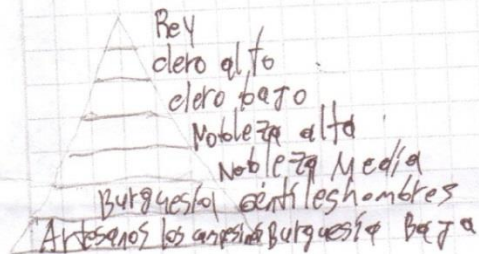 Rey
clero alto
clero bajo
Nobleza alta
Nobleza Media
Burguesía Gentileshombres
Artesanos los campesinos Burguesía Baja